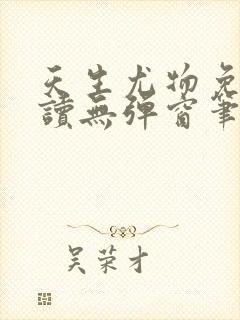 天生尤物免
讀無彈窗筆
吴荣才